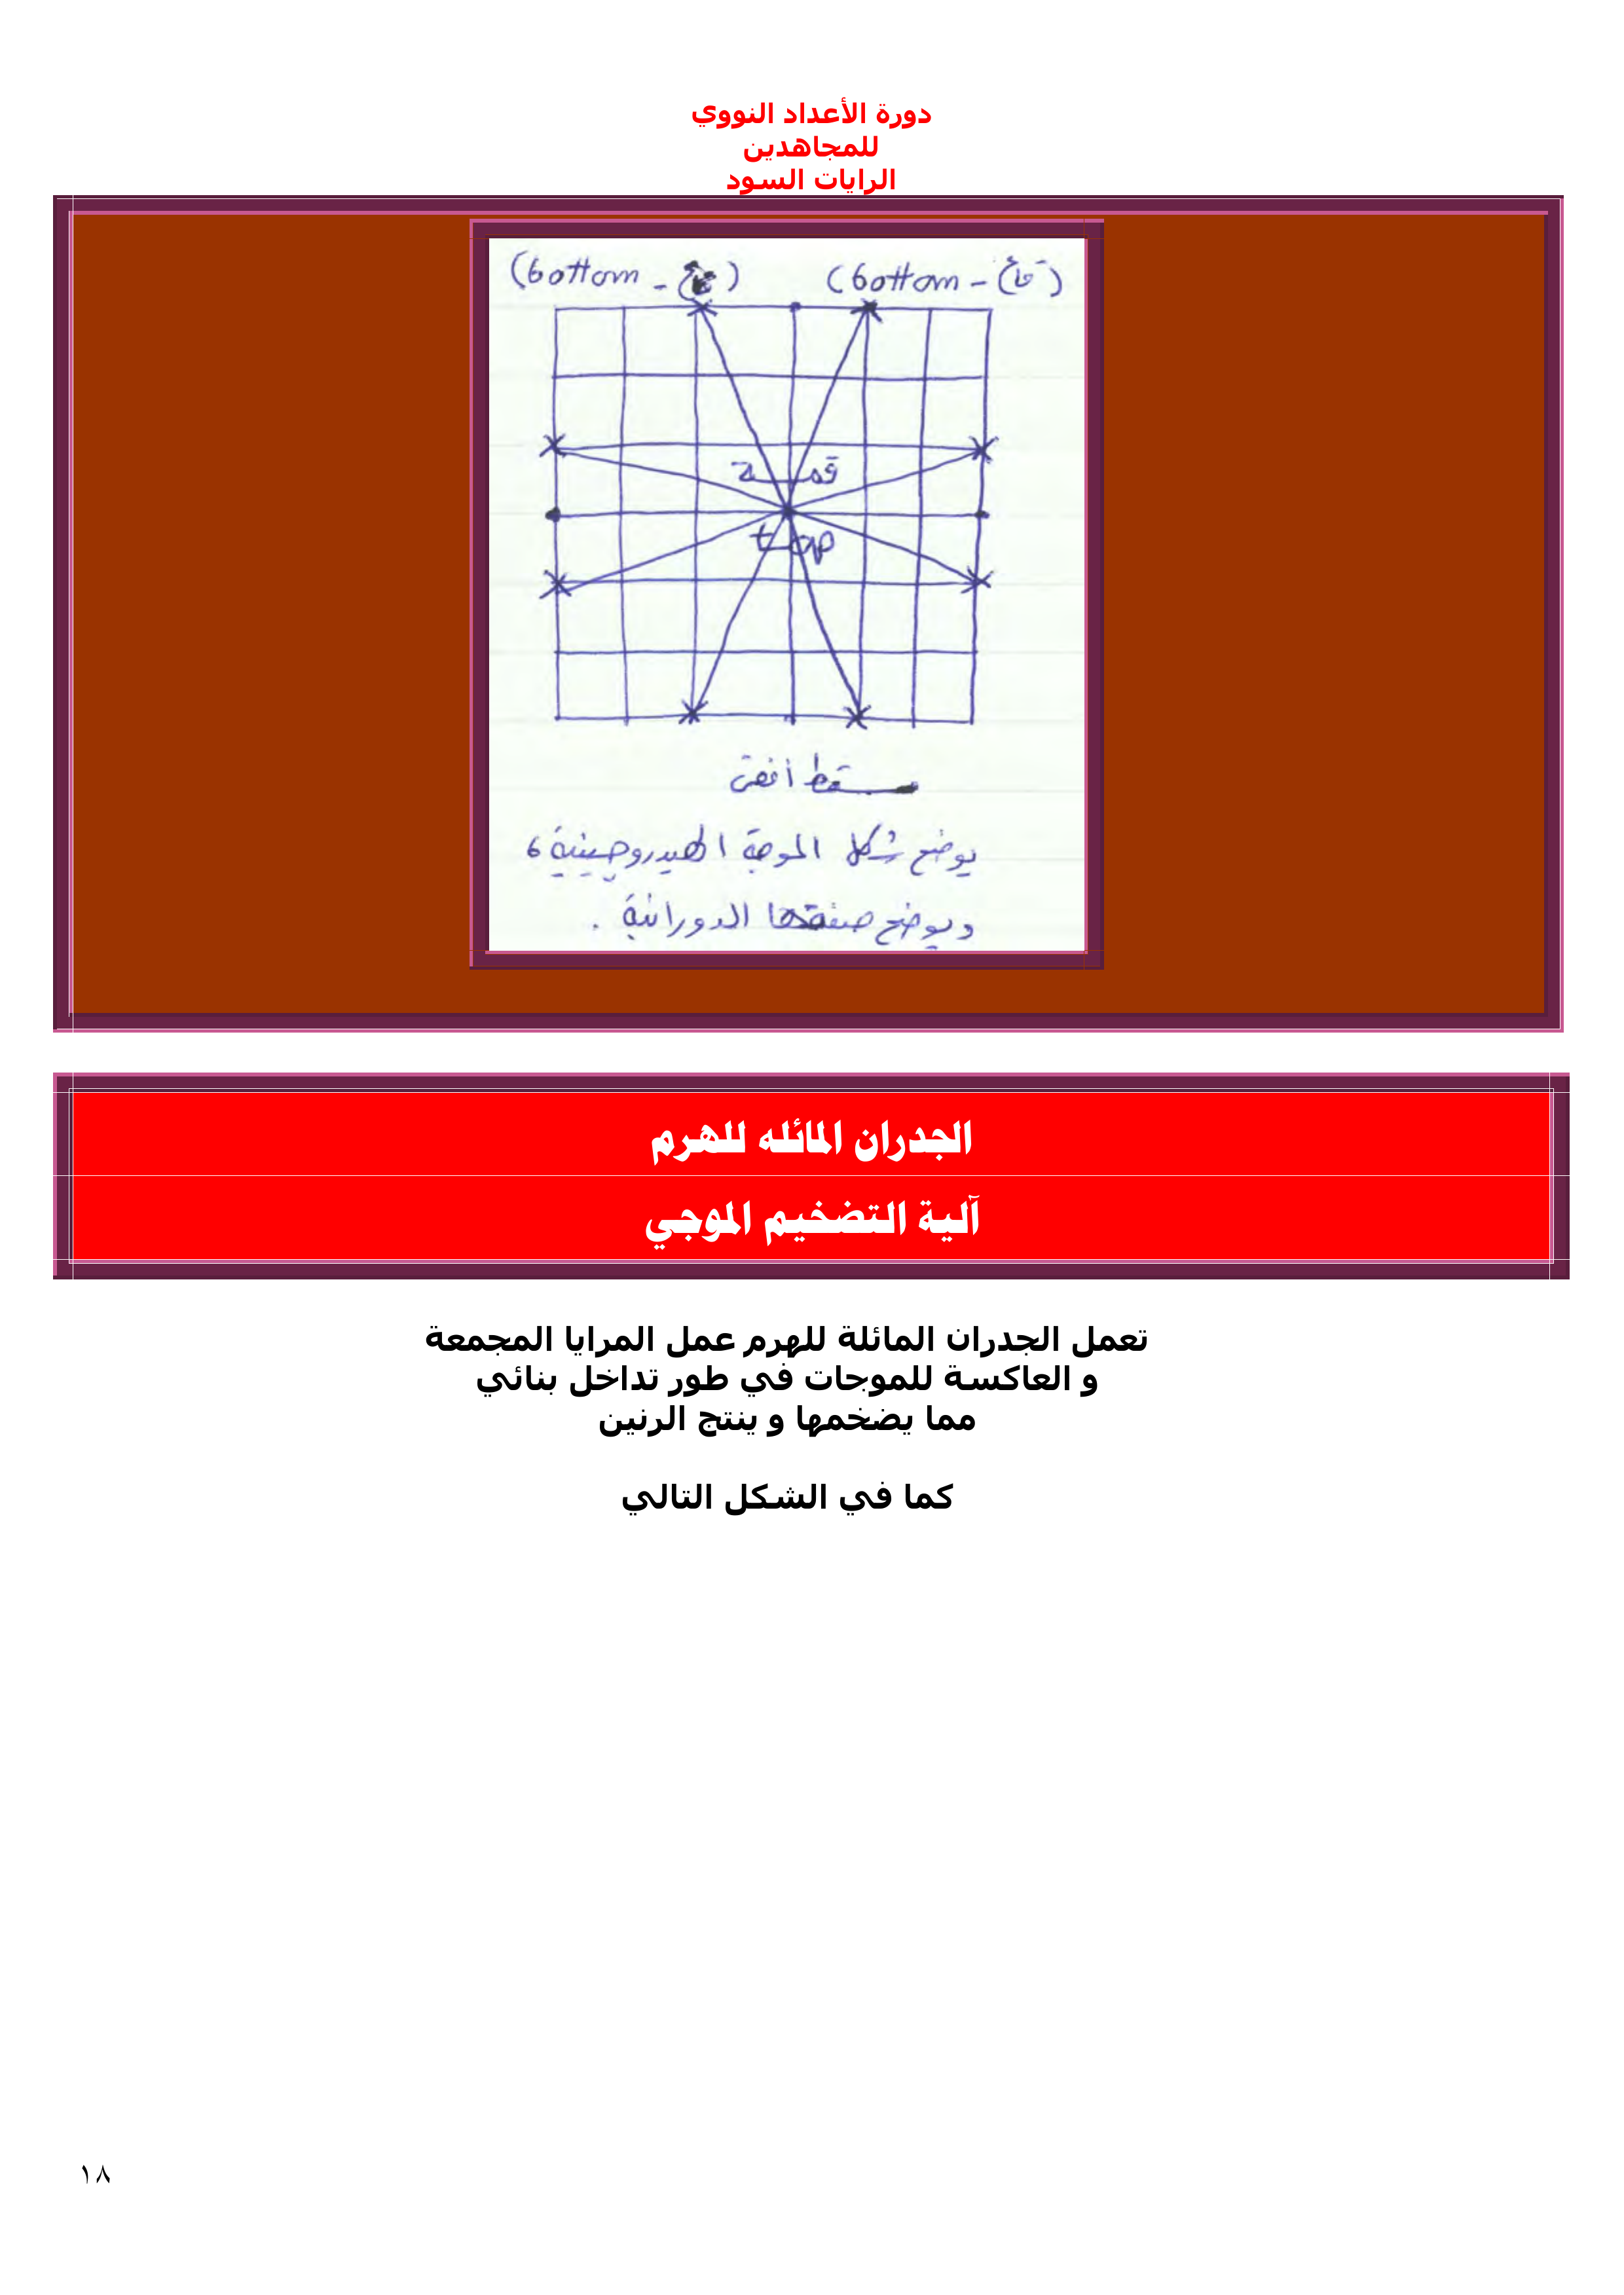 دورة الأعداد النووي
للمجاهدين
الرايات السود
(bottom - قاع) (bottom - قاع)
قمـــة
top
مسـقط أفقى
يوضح شكل الموجة الهيدروجينية،
ويوضح صفتها الدورانية .
الجدران المائله للهرم
آلية التضخيم الموجي
تعمل الجدران المائلة للهرم عمل المرايا المجمعة
و العاكسة للموجات في طور تداخل بنائي
مما يضخمها و ينتج الرنين
كما في الشكل التالي
١٨